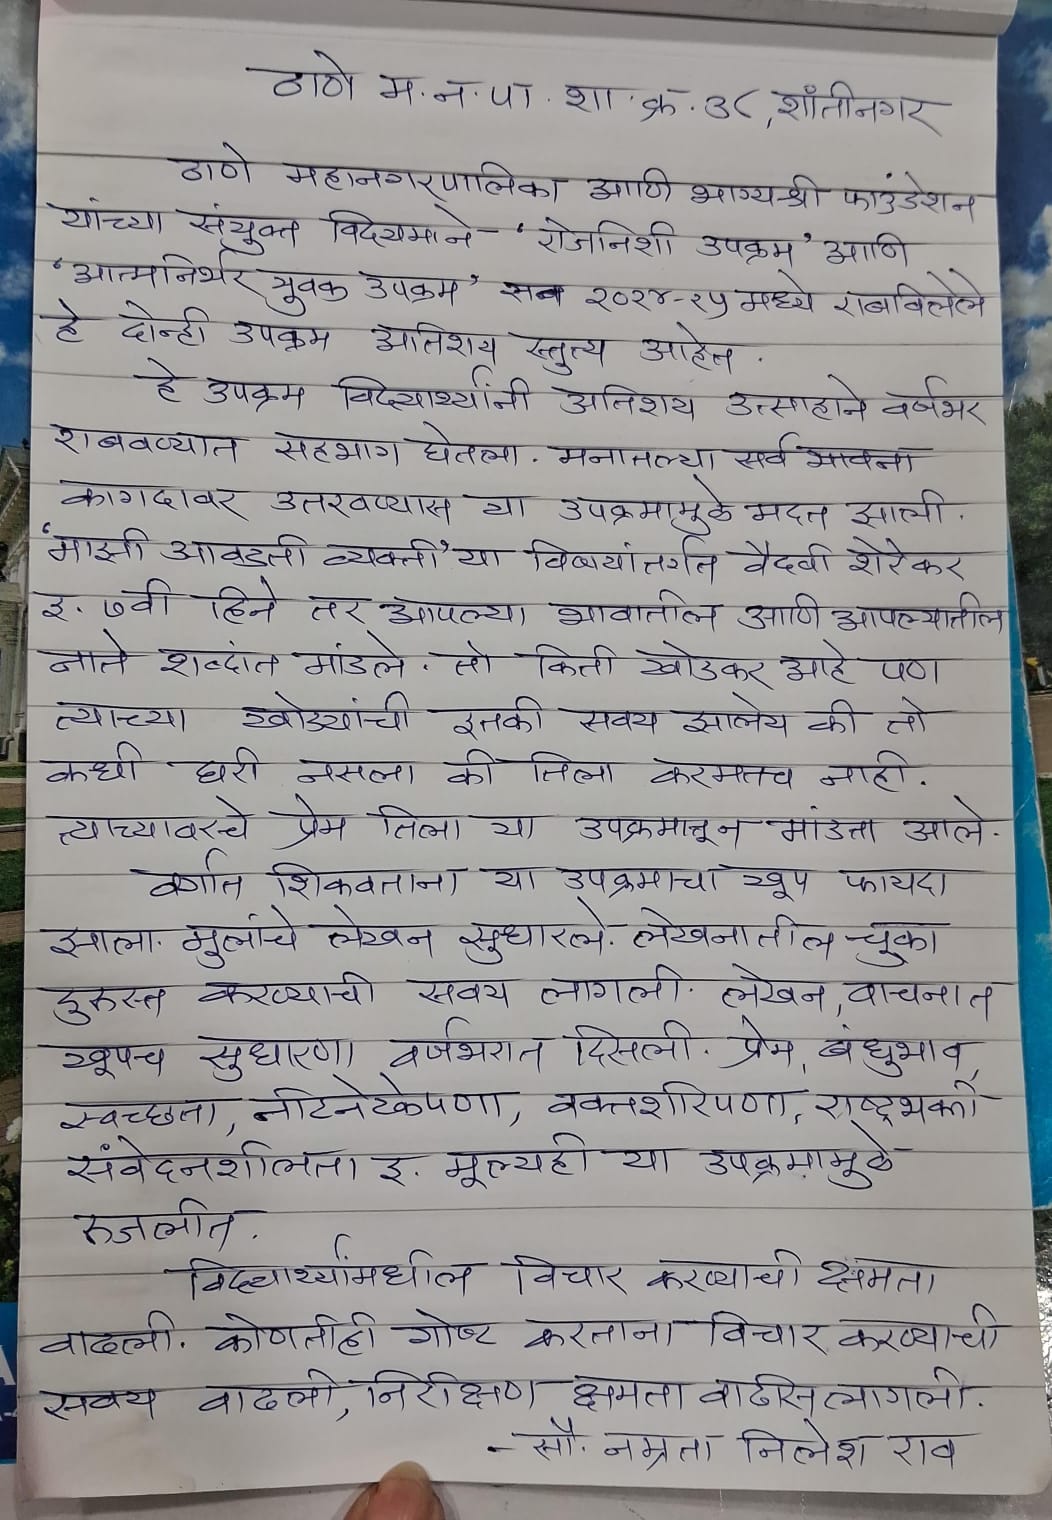 ठाणे म.न.पा. शा.क्र. ३८, शांतीनगर
ठाणे महानगरपालिका आणि भाग्यश्री फाउंडेशन
यांच्या संयुक्त विद्यमाने - 'रोजनिशी उपक्रम' आणि
'आत्मनिर्भर युवक उपक्रम' सन २०२४-२५ मध्ये राबविलेले
हे दोन्ही उपक्रम अतिशय स्तुत्य आहेत.
हे उपक्रम विद्यार्थ्यांनी अतिशय उत्साहाने वर्षभर
राबवण्यात सहभाग घेतला. मनातल्या सर्व भावना
कागदावर उतरवण्यास या उपक्रमामुळे मदत झाली.
'माझी आवडती व्यक्ती' या विषयांतर्गत वैदवी शेरेकर
इ. ७वी हिने तर आपल्या भावातील आणि आपल्यातील
नाते शब्दांत मांडले. तो किती खोडकर आहे पण
त्याच्या खोड्यांची इतकी सवय झालेय की तो
कधी घरी नसला की तिला करमतच नाही.
त्याच्यावरचे प्रेम तिला या उपक्रमातून मांडता आले.
वर्गात शिकवताना या उपक्रमाचा खूप फायदा
झाला. मुलांचे लेखन सुधारले. लेखनातील चुका
दुरुस्त करण्याची सवय लागली. लेखन, वाचनात
खूपच सुधारणा वर्षभरात दिसली. प्रेम, बंधुभाव,
स्वच्छता, नीटनेटकेपणा, वक्तशीरपणा, राष्ट्रभक्ती
संवेदनशीलता इ. मूल्यही या उपक्रमामुळे
रुजलीत.
विद्यार्थ्यांमधील विचार करण्याची क्षमता
वाढली. कोणतीही गोष्ट करताना विचार करण्याची
सवय वाढली, निरीक्षण क्षमता वाढीस लागली.
- सौ. नम्रता निलेश राव